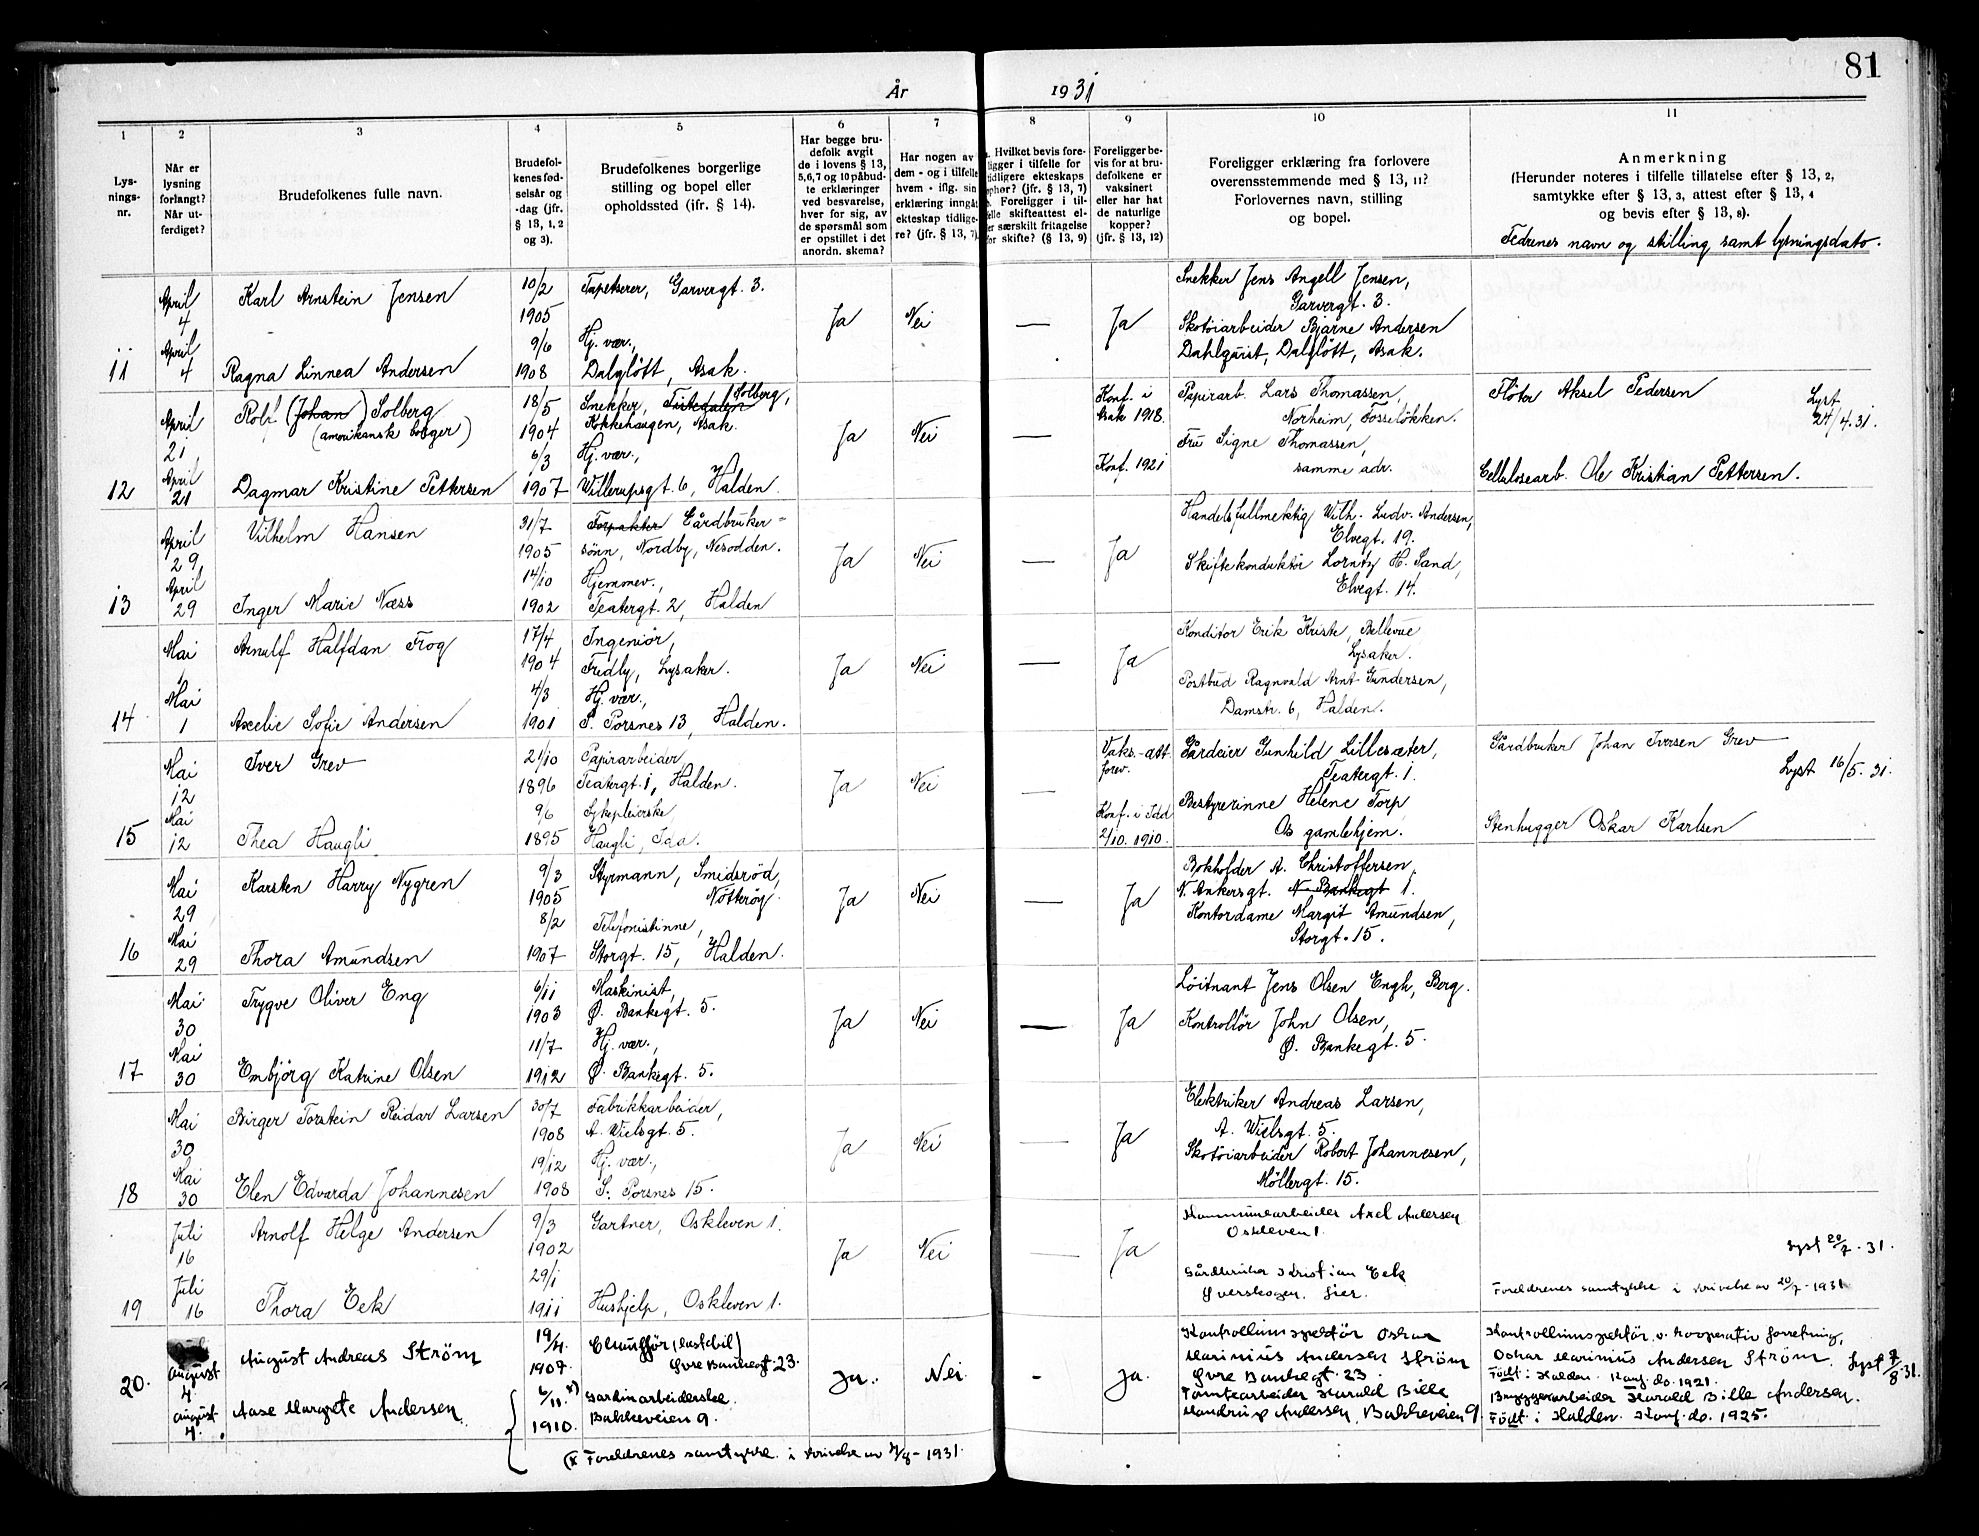 81
År 1931
1 2 3 4 5 6 7 8 9 10 11
Lys-
nings-
nr.
Når er
lysning
forlangt?
Når ut-
ferdiget?
Brudefolkenes fulle navn.
Brudefol-
kenes fød-
selsår og
-dag (jfr.
§ 13, 1, 2
og 3).
Brudefolkenes borgerlige
stilling og bopel eller
opholdssted (ifr. § 14).
Har begge bru-
defolk avgit
de i lovens § 13,
5,6,7 og 10 påbud-
te erklæringer
ved besvarelse,
hver for sig, av
de spørsmål som
er opstillet i det
anordn. skema?
Har nogen av
dem - og i tilfelle
hvem - iflg. sin
erklæring inngåt
ekteskap tidlige-
re? (jfr. § 13, 7)
Hvilket bevis fore-
ligger i tilfelle for
tidligere ekteskaps
ophør? (jfr. § 13, 7)
Foreligger i til-
felle skifteattest el-
er særskilt fritagelse
for skifte? (§ 13, 9)
Foreligger be-
vis for at bru-
defolkene er
vaksinert
eller har hat
de naturlige
kopper?
(jfr. § 13, 12)
Foreligger erklæring fra forlovere
overensstemmende med § 13, 11?
Forlovernes navn, stilling
og bopel.
Anmerkning
(Herunder noteres i tilfelle tillatelse efter § 13, 2,
samtykke efter § 13, 3, attest efter § 13, 4
og bevis efter § 13, 8).
Fedrenes navn og stilling samt lysningsdato.
11
April
4
April
4
Karl Arnstein Jensen
Ragna Linnea Andersen
10/2
1905
9/6
1908
Tapetserer, Garvergt. 3.
Hj. vær.,
Dalgløtt, Asak.
Ja Nei — Ja
Snekker Jens Angell Jensen,
Garvergt. 3.
Skotøiarbeider Bjarne Andersen
Dahlquist, Dalgløtt, Asak.
12
April
21
April
21
Rolf (Johan) Solberg
(amerikansk borger)
Dagmar Kristine Pettersen
18/5
1904
6/3
1907
Snekker, Solberg,
Kokkehaugen, Asak.
Hj. vær.,
Willerupsgt. 6, Halden.
Ja Nei —
Konf. i
Asak 1918.
Konf. 1921
Papirarb. Lars Thomassen,
Norheim, Fosseløkken.
Fru Signe Thomassen,
samme adr.
Fløter Aksel Pedersen
Lyst
24/4.31.
Cellulosearb. Ole Kristian Pettersen.
13
April
29
April
29
Vilhelm Hansen
Inger Marie Næss
31/7
1905
14/10
1902
Forpakter Gårdbruker-
sønn, Nordby, Nesodden.
Hjemmev.,
Teatergt. 2, Halden
Ja Nei — Ja
Handelsfullmektig Wilh. Ludv. Andersen,
Elvegt. 19.
Skiftekonduktør Lorntz H. Sand,
Elvegt. 14.
14
Mai
1
Mai
1
Arnulf Halfdan Frog
Axelie Sofie Andersen
17/4
1904
4/3
1901
Ingeniør,
Fredly, Lysaker.
Hj. vær.,
S. Porsnes 13, Halden.
Ja Nei — Ja
Konditor Erik Kriste, Bellevue
Lysaker.
Postbud Ragnvald Arnt Gundersen,
Damstr. 6, Halden.
15
Mai
12
Mai
12
Iver Grev
Thea Haugli
21/10
1896
9/6
1895
Papirarbeider
Teatergt. 1, Halden.
Sykepleierske,
Haugli, Idd.
Ja Nei —
Vaks.-att.
forev.
Konf. i Idd
2/10. 1910.
Gårdeier Gunhild Lillesæter,
Teatergt. 1.
Bestyrerinne Helene Torp
Os gamlehjem.
Gårdbruker Johan Iversen Grev
Lyst 16/5. 31.
Stenhugger Oskar Karlsen
16
Mai
29
Mai
29
Karsten Harry Nygren
Thora Amundsen
9/3
1905
8/2
1907
Styrmann, Smidsrød,
Nøtterøy.
Telefonistinne,
Storgt. 15, Halden.
Ja Nei — Ja
Bokholder A. Christoffersen,
N. Ankersgt. N. Bankegt 1.
Kontordame Margit Amundsen,
Storgt. 15.
17
Mai
30
Mai
30
Trygve Oliver Eng
Embjørg Katrine Olsen
6/11
1903
11/7
1912
Maskinist,
Ø. Bankegt. 5.
Hj. vær.,
Ø. Bankegt. 5.
Ja Nei — Ja
Løitnant Jens Olsen Engh, Berg.
Kontrollør John Olsen,
Ø. Bankegt. 5.
18
Mai
30
Mai
30
Birger Torstein Reidar Larsen
Elen Edvarda Johannesen
30/7
1908
19/12
1908
Fabrikkarbeider,
A. Wielsgt. 5.
Hj. vær.,
S. Porsnes 15.
Ja Nei — Ja
Elektriker Andreas Larsen,
A. Wielsgt. 5.
Skotøiarbeider Robert Johannesen,
Møllergt. 15.
19
Juli
16
Juli
16
Arnolf Helge Andersen
Thora Eek
9/3
1902
29/1
1911
Gartner, Oskleven 1.
Hushjelp, Oskleven 1.
Ja Nei — Ja
Kommunearbeider Axel Andersen
Oskleven 1
Gårdbruker Kristian Eek
Sverskogen. Lier.
Lyst 20/7. 31.
Foreldrenes samtykke i skrivelse av 20/7-1931
20.
August
4.
August
4.
August Andreas Ström
Aase Margrete Andersen
19/4.
1907.
6/11. x)
1910.
Chauffør (lastebil)
Øvre Bankegt 23.
Gardinarbeiderske.
Bakkeveien 9.
Ja. Nei. - Ja.
Kontrollinspektør Oskar
Marinius Andersen Strøm
Øvre Bankegt. 23.
Tomtearbeider Harald Bille
Mandrup Andersen, Bakkeveien 9.
Kontrollinspektør v. kooperativ forretning,
Oskar Marinius Andersen Strøm.
Lyst 7/8.31.
Født i Halden. Konf. do. 1921.
Bryggearbeider Harald Bille Andersen.
Født i Halden. Konf. do. 1925.
(x Foreldrenes samtykke i skrivelse av 4/8-1931.